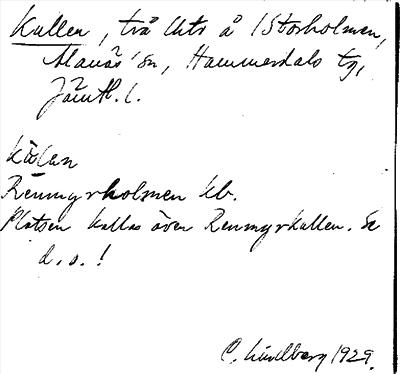 Kallen, två lhtr å Storholmen,
Alanäs sn, Hammerdals tg,
Jämtl. l.
kä̀lan
Renmyrholmen kb.
Platsen kallas även Renmyrkallen. Se
d. o. !
C. Lindberg 1929.